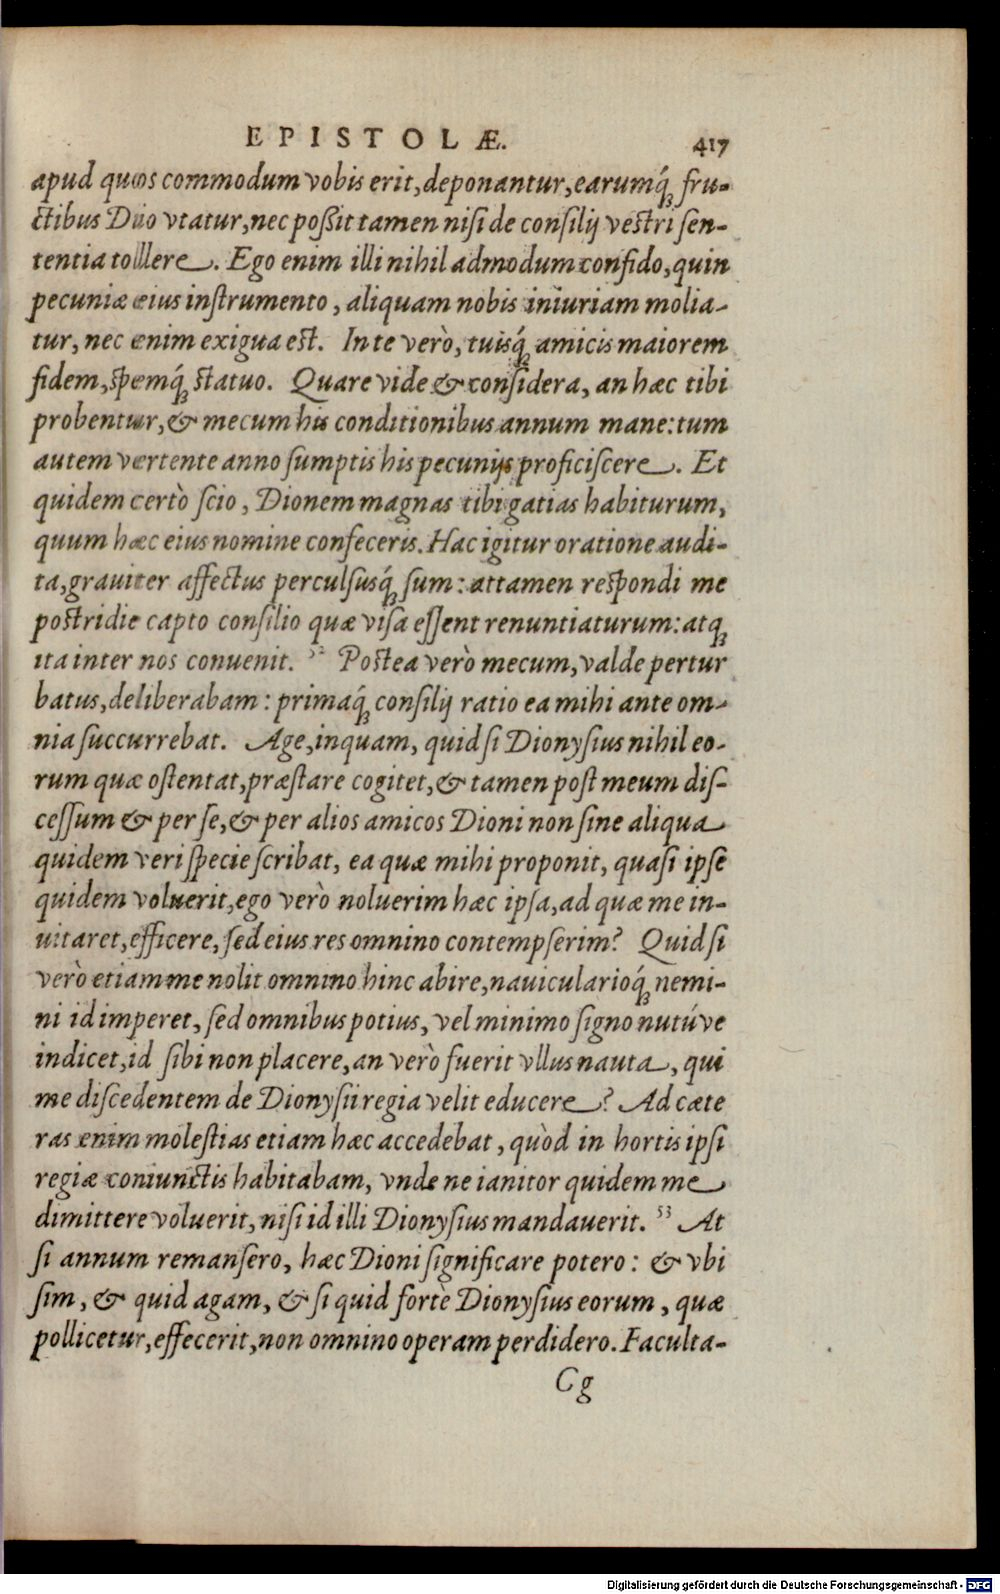 EPISTOLÆ. 417
apud quos commodum vobis erit, deponantur, earumq́ꝫ fru-
ctibus Dio vtatur, nec poßit tamen nisi de consilij vestri sen-
tentia tollere. Ego enim illi nihil admodum confido, quin
pecuniæ eius instrumento, aliquam nobis iniuriam molia-
tur, nec enim exigua est. In te verò, tuisq́ꝫ amicis maiorem
fidem, spemq́ꝫ statuo. Quare vide & considera, an hæc tibi
probentur, & mecum his conditionibus annum mane: tum
autem vertente anno sumptis his pecunijs proficiscere. Et
quidem certò scio, Dionem magnas tibi gatias habiturum,
quum hæc eius nomine confeceris. Hac igitur oratione audi-
ta, grauiter affectus perculsusq́ꝫ sum: attamen respondi me
postridie capto consilio quæ visa essent renuntiaturum: atqꝫ
ita inter nos conuenit. 52 Postea verò mecum, valde pertur
batus, deliberabam: primaq́ꝫ consilij ratio ea mihi ante om-
nia succurrebat. Age, inquam, quid si Dionysius nihil eo-
rum quæ ostentat, præstare cogitet, & tamen post meum dis-
cessum & per se, & per alios amicos Dioni non sine aliqua
quidem veri specie scribat, ea quæ mihi proponit, quasi ipse
quidem voluerit, ego verò noluerim hæc ipsa, ad quæ me in-
uitaret, efficere, sed eius res omnino contempserim? Quid si
verò etiam me nolit omnino hinc abire, nauicularioq́ꝫ nemi-
ni id imperet, sed omnibus potius, vel minimo signo nutúve
indicet, id sibi non placere, an verò fuerit vllus nauta, qui
me discedentem de Dionysii regia velit educere? Ad cæte
ras enim molestias etiam hæc accedebat, quòd in hortis ipsi
regiæ coniunctis habitabam, vnde ne ianitor quidem me
dimittere voluerit, nisi id illi Dionysius mandauerit. 53 At
si annum remansero, hæc Dioni significare potero: & vbi
sim, & quid agam, & si quid fortè Dionysius eorum, quæ
pollicetur, effecerit, non omnino operam perdidero. Faculta-
Cg
Digitalisierung gefördert durch die Deutsche Forschungsgemeinschaft - DFG